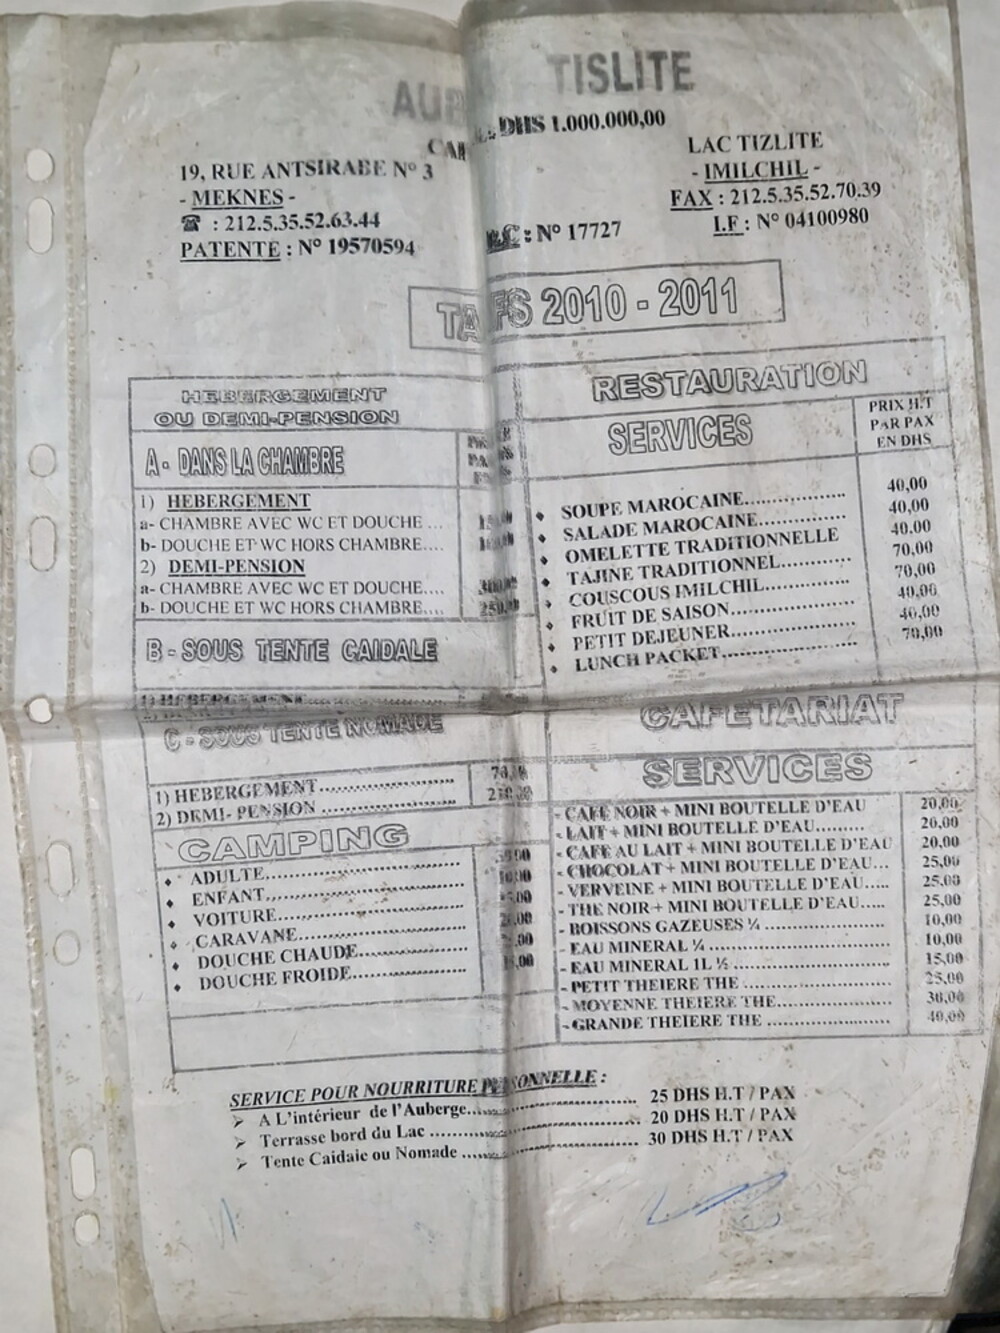 TISLITE
DHS 1.000.000,00
19, RUE ANTSIRABE N° 3
- MEKNES -
☎ : 212.5.35.52.63.44
PATENTE : N° 19570594
: N° 17727
LAC TIZLITE
- IMILCHIL -
FAX : 212.5.35.52.70.39
I.F : N° 04100980
2010 - 2011
HEBERGEMENT
OU DEMI-PENSION
A - DANS LA CHAMBRE
1) HEBERGEMENT
a- CHAMBRE AVEC WC ET DOUCHE ...
b- DOUCHE ET WC HORS CHAMBRE....
2) DEMI-PENSION
a- CHAMBRE AVEC WC ET DOUCHE....
b- DOUCHE ET WC HORS CHAMBRE.... 250,00
B - SOUS TENTE CAIDALE
1) HEBERGEMENT
C - SOUS TENTE NOMADE
1) HEBERGEMENT
2) DEMI- PENSION
CAMPING
♦ ADULTE
♦ ENFANT
♦ VOITURE
♦ CARAVANE
♦ DOUCHE CHAUDE
♦ DOUCHE FROIDE
RESTAURATION
SERVICES
PRIX H.T
PAR PAX
EN DHS
♦ SOUPE MAROCAINE 40,00
♦ SALADE MAROCAINE 40,00
♦ OMELETTE TRADITIONNELLE 40,00
♦ TAJINE TRADITIONNEL 70,00
♦ COUSCOUS IMILCHIL 70,00
♦ FRUIT DE SAISON 40,00
♦ PETIT DEJEUNER 40,00
♦ LUNCH PACKET 70,00
CAFETARIAT
SERVICES
- CAFE NOIR + MINI BOUTELLE D'EAU 20,00
- LAIT + MINI BOUTELLE D'EAU......... 20,00
- CAFE AU LAIT + MINI BOUTELLE D'EAU 20,00
- CHOCOLAT + MINI BOUTELLE D'EAU... 25,00
- VERVEINE + MINI BOUTELLE D'EAU..... 25,00
- THE NOIR + MINI BOUTELLE D'EAU..... 25,00
- BOISSONS GAZEUSES ¼ 10,00
- EAU MINERAL ¼ 10,00
- EAU MINERAL 1L ½ 15,00
- PETIT THEIERE THE 25,00
- MOYENNE THEIERE THE 30,00
- GRANDE THEIERE THE 40,00
SERVICE POUR NOURRITURE PERSONNELLE :
➢ A L'intérieur de l'Auberge 25 DHS H.T / PAX
➢ Terrasse bord du Lac 20 DHS H.T / PAX
➢ Tente Caidale ou Nomade 30 DHS H.T / PAX